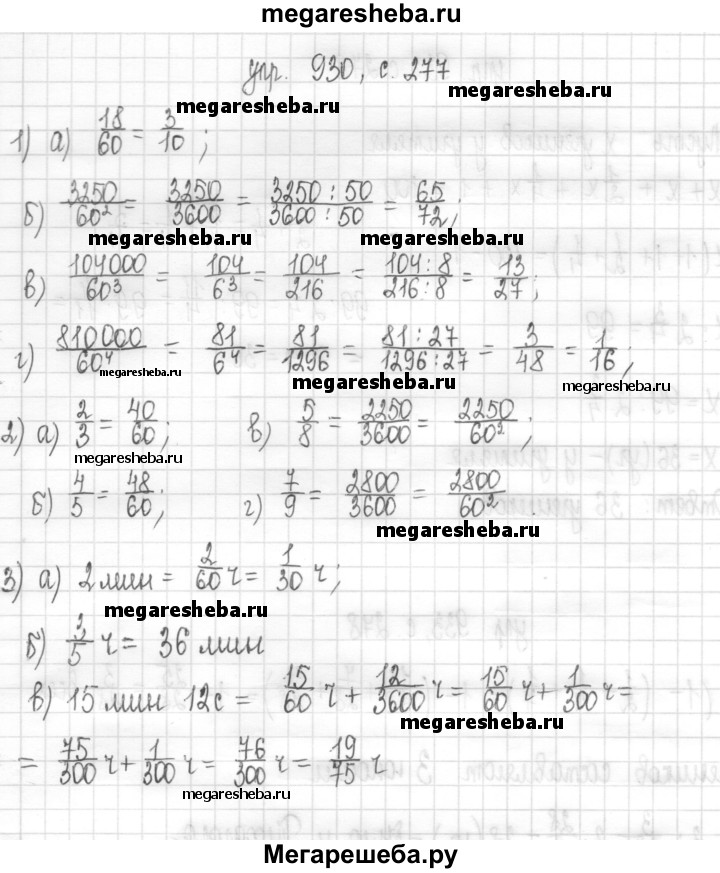 megaresheba.ru
упр. 930, с. 277
megaresheba.ru
megaresheba.ru
1) а) 18/60 = 3/10 ;
б) 3250/60² = 3250/3600 = 3250 : 50/3600 : 50 = 65/72 ;
megaresheba.ru megaresheba.ru
в) 104000/60³ = 104/6³ = 104/216 = 104 : 8/216 : 8 = 13/27 ;
г) 810000/60⁴ = 81/6⁴ = 81/1296 = 81 : 27/1296 : 27 = 3/48 = 1/16 ;
megaresheba.ru megaresheba.ru megaresheba.ru
2) а) 2/3 = 40/60 ; в) 5/8 = 2250/3600 = 2250/60² ;
megaresheba.ru
б) 4/5 = 48/60 ; г) 7/9 = 2800/3600 = 2800/60² .
megaresheba.ru
3) а) 2 мин = 2/60 ч = 1/30 ч ;
megaresheba.ru
б) 3/5 ч = 36 мин
в) 15 мин 12с = 15/60 ч + 12/3600 ч = 15/60 ч + 1/300 ч =
megaresheba.ru
= 75/300 ч + 1/300 ч = 76/300 ч = 19/75 ч
megaresheba.ru
Мегарешеба.ру